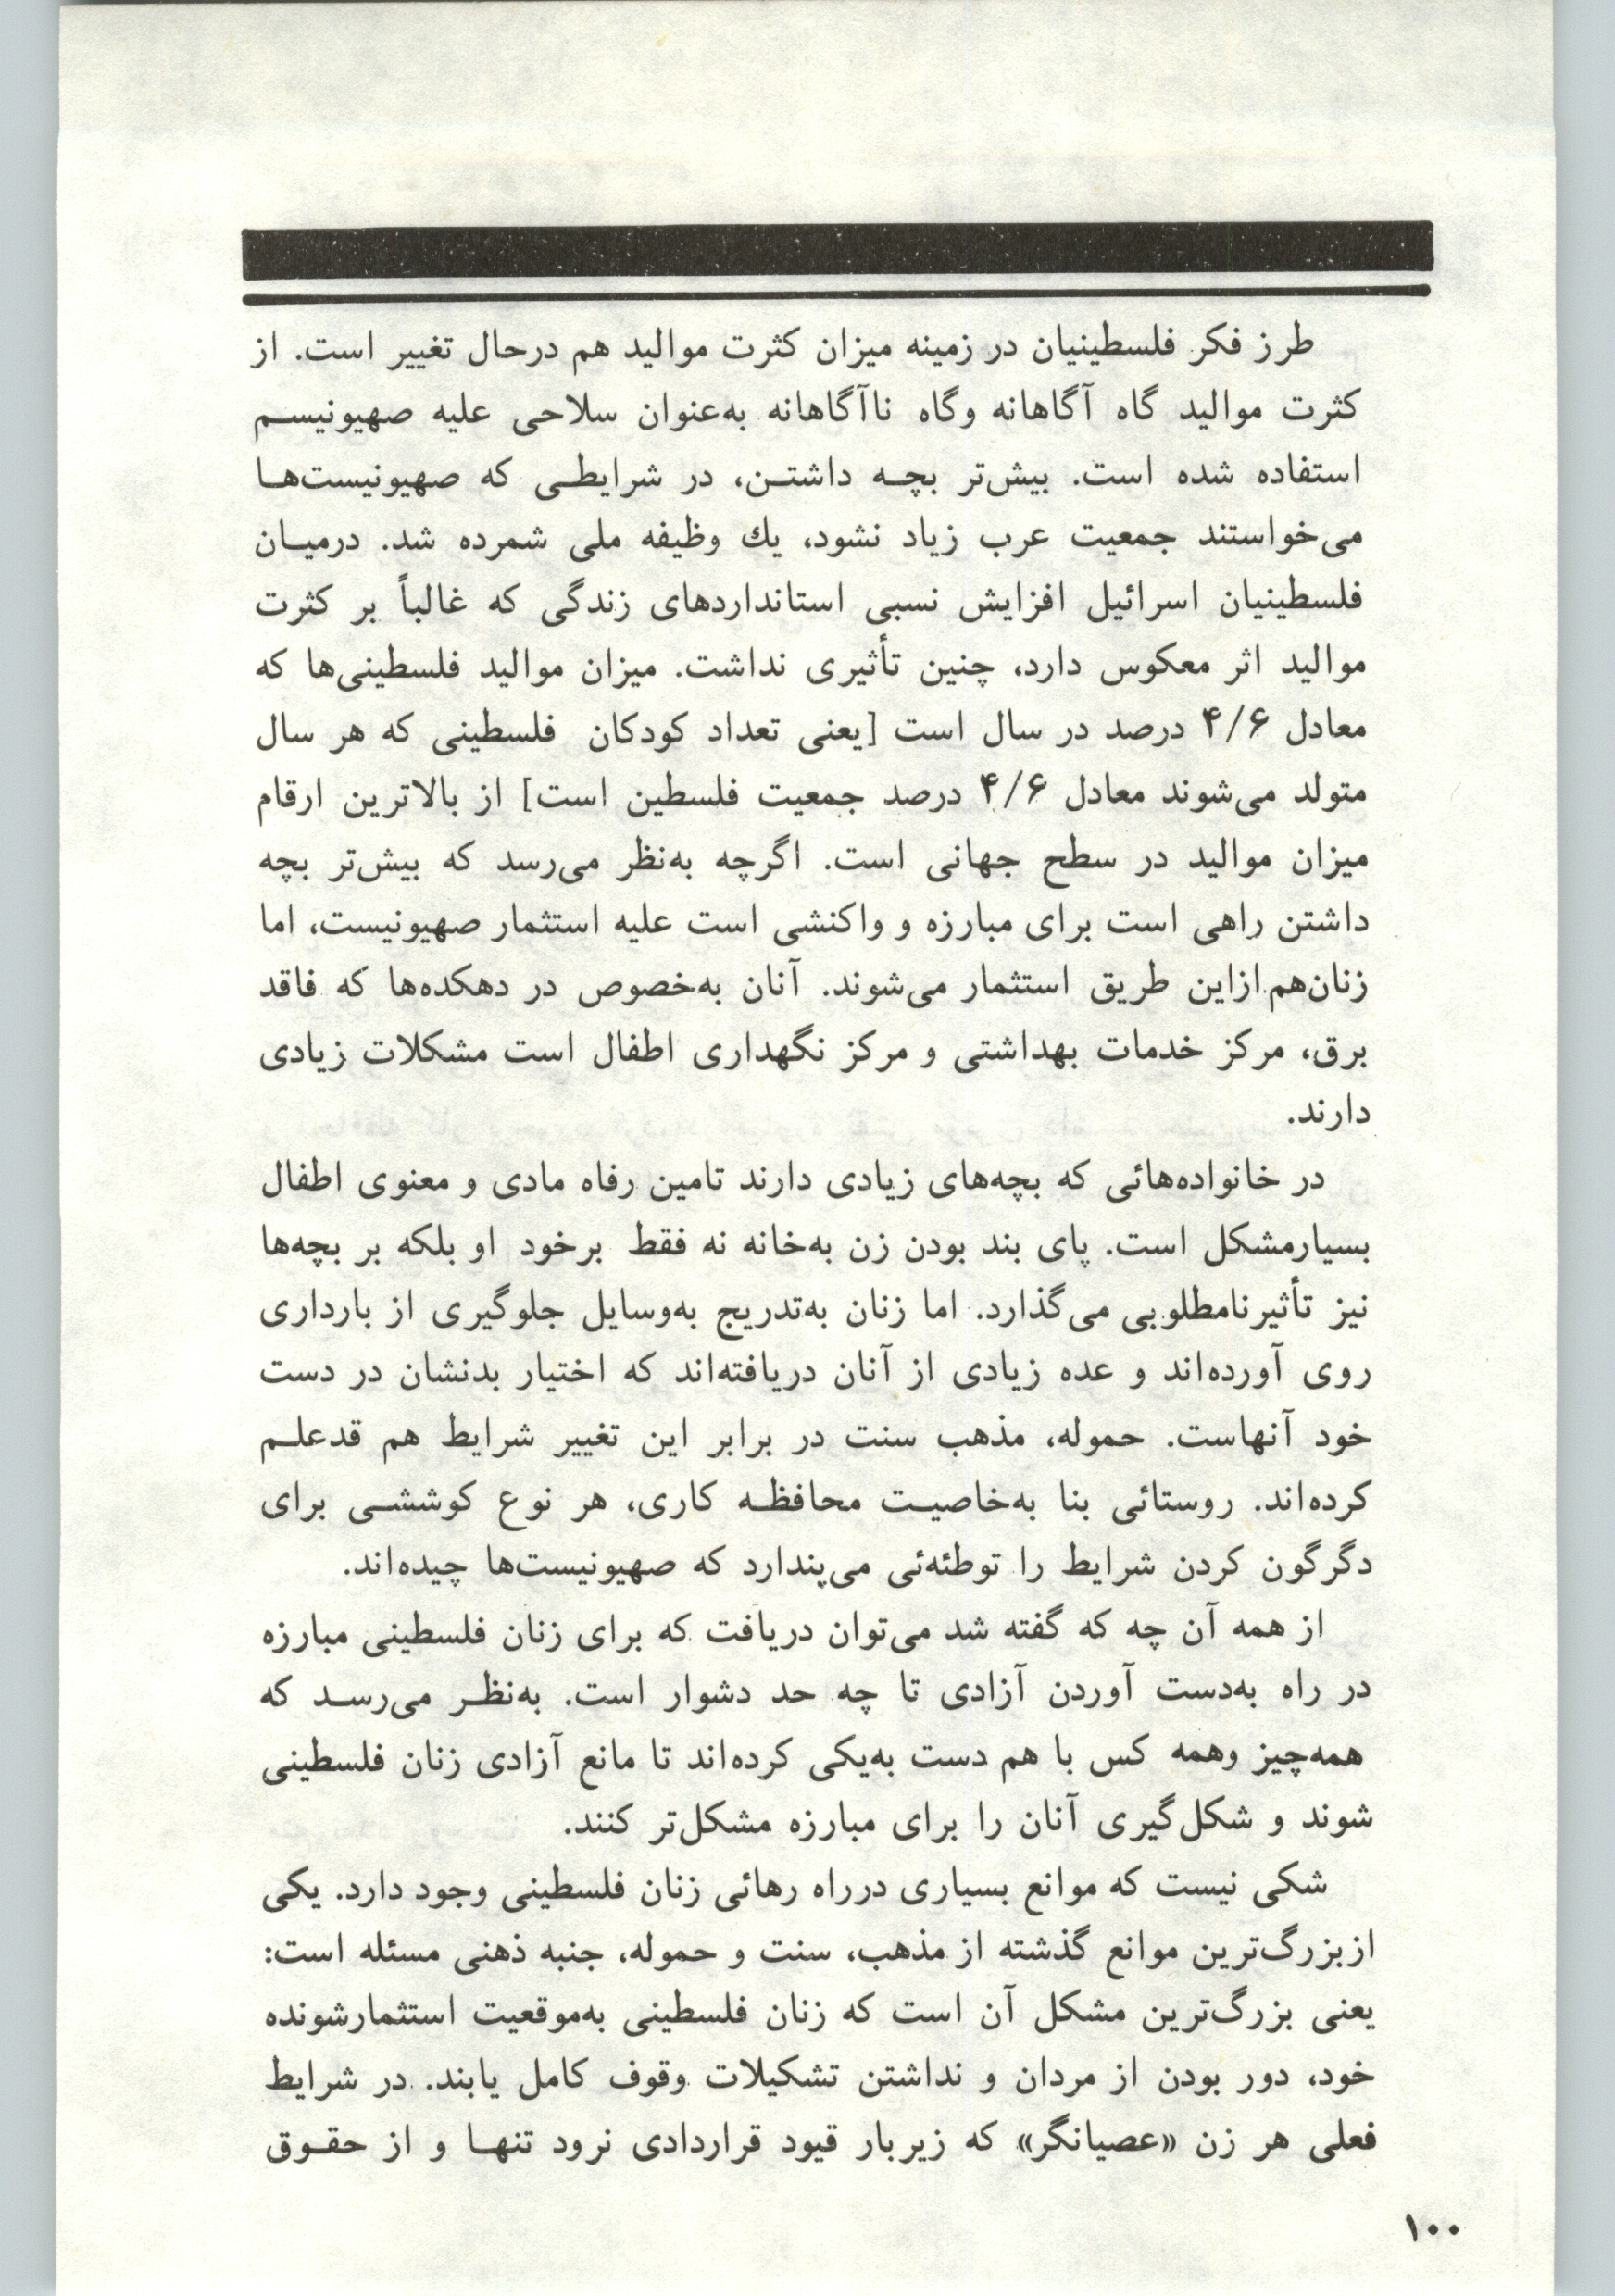 طرز فکر فلسطینیان در زمینه میزان کثرت موالید هم درحال تغییر است. از
کثرت موالید گاه آگاهانه وگاه ناآگاهانه به‌عنوان سلاحی علیه صهیونیسم
استفاده شده است. بیش‌تر بچه داشتن، در شرایطی که صهیونیست‌ها
می‌خواستند جمعیت عرب زیاد نشود، یك وظیفه ملی شمرده شد. درمیان
فلسطینیان اسرائیل افزایش نسبی استانداردهای زندگی که غالباً بر کثرت
موالید اثر معکوس دارد، چنین تأثیری نداشت. میزان موالید فلسطینی‌ها که
معادل ۴/۶ درصد در سال است [یعنی تعداد کودکان فلسطینی که هر سال
متولد می‌شوند معادل ۴/۶ درصد جمعیت فلسطین است] از بالاترین ارقام
میزان موالید در سطح جهانی است. اگرچه به‌نظر می‌رسد که بیش‌تر بچه
داشتن راهی است برای مبارزه و واکنشی است علیه استثمار صهیونیست، اما
زنان‌هم ازاین طریق استثمار می‌شوند. آنان به‌خصوص در دهکده‌ها که فاقد
برق، مرکز خدمات بهداشتی و مرکز نگهداری اطفال است مشکلات زیادی
دارند.
در خانواده‌هائی که بچه‌های زیادی دارند تامین رفاه مادی و معنوی اطفال
بسیارمشکل است. پای بند بودن زن به‌خانه نه فقط برخود او بلکه بر بچه‌ها
نیز تأثیرنامطلوبی می‌گذارد. اما زنان به‌تدریج به‌وسایل جلوگیری از بارداری
روی آورده‌اند و عده زیادی از آنان دریافته‌اند که اختیار بدنشان در دست
خود آنهاست. حموله، مذهب سنت در برابر این تغییر شرایط هم قدعلم
کرده‌اند. روستائی بنا به‌خاصیت محافظه کاری، هر نوع کوششی برای
دگرگون کردن شرایط را توطئه‌ئی می‌پندارد که صهیونیست‌ها چیده‌اند.
از همه آن چه که گفته شد می‌توان دریافت که برای زنان فلسطینی مبارزه
در راه به‌دست آوردن آزادی تا چه حد دشوار است. به‌نظر می‌رسد که
همه‌چیز وهمه کس با هم دست به‌یکی کرده‌اند تا مانع آزادی زنان فلسطینی
شوند و شکل‌گیری آنان را برای مبارزه مشکل‌تر کنند.
شکی نیست که موانع بسیاری درراه رهائی زنان فلسطینی وجود دارد. یکی
ازبزرگ‌ترین موانع گذشته از مذهب، سنت و حموله، جنبه ذهنی مسئله است:
یعنی بزرگ‌ترین مشکل آن است که زنان فلسطینی به‌موقعیت استثمارشونده
خود، دور بودن از مردان و نداشتن تشکیلات وقوف کامل یابند. در شرایط
فعلی هر زن «عصیانگر» که زیربار قیود قراردادی نرود تنها و از حقوق
۱۰۰